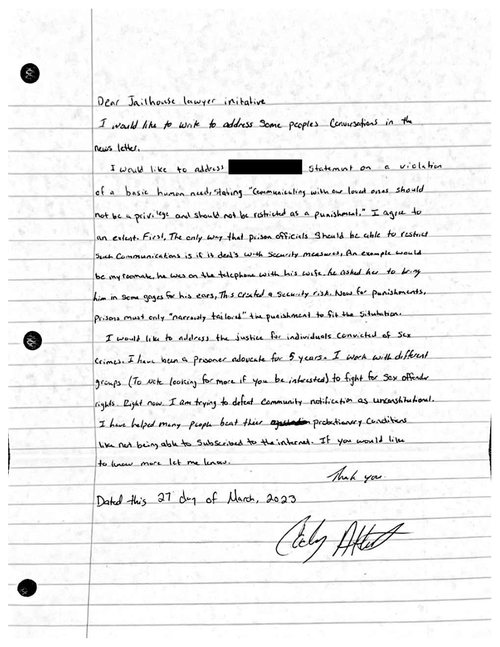 Dear Jailhouse lawyer initative
I would like to write to address Some peoples Conversations in the
news letter.
I would like to address Statement on a violation
of a basic human need, Stating "Communicating with our loved ones should
not be a privilege and should not be restricted as a punishment." I agree to
an extent. First, The only way that prison officials Should be able to restrict
Such Communications is if it deal's with Security measures, An example would
be my roommate, he was on the telephone with his wife, he asked her to bring
him in some gages for his ears, This Created a Security risk. Now for punishments,
Prisons must only "narrowly tailored" the punishment to fit the Situtation.
I would like to address the justice for individuals Convicted of Sex
Crimes. I have been a prisoner advocate for 5 years. I work with different
groups (To note looking for more if you be interested) to fight for Sex offender
rights. Right now I am trying to defeat Community notification as unconstitutional.
I have helped many people beat thier probationary Conditions
like not being able to Subscribed to the internet. If you would like
to know more let me know.
Thank you
Dated this 27 day of March, 2023